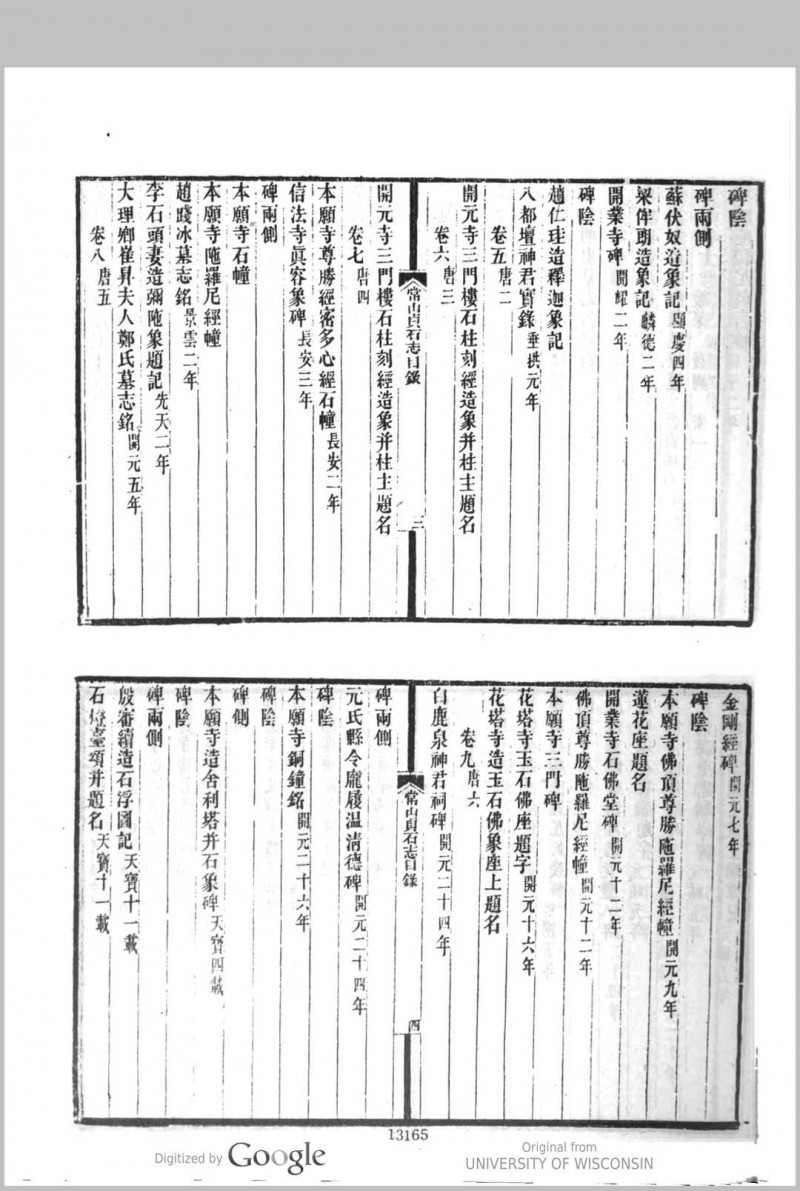 碑陰
碑兩側
蘇伏奴造象記顯慶四年
梁侔朗造象記麟德二年
開業寺碑開耀二年
碑陰
趙仁珪造釋迦象記
八都壇神君實錄垂拱元年
卷五唐二
開元寺三門樓石柱刻經造象并柱主題名
卷六唐三
常山貞石志目錄
三
開元寺三門樓石柱刻經造象并柱主題名
卷七唐四
本願寺尊勝經密多心經石幢長安二年
信法寺眞容象碑長安三年
碑兩側
本願寺石幢
本願寺陁羅尼經幢
趙踐冰墓志銘景雲二年
李石頭妻造彌陁象題記先天二年
大理卿崔昇夫人鄭氏墓志銘開元五年
卷八唐五
金剛經碑開元七年
碑陰
本願寺佛頂尊勝陁羅尼經幢開元九年
蓮花座題名
開業寺石佛堂碑開元十二年
佛頂尊勝陁羅尼經幢開元十二年
本願寺三門碑
花塔寺玉石佛座題字開元十六年
花塔寺造玉石佛象座上題名
卷九唐六
白鹿泉神君祠碑開元二十四年
常山貞石志目錄
四
碑兩側
元氏縣令龐履温清德碑開元二十四年
碑陰
本願寺銅鐘銘開元二十六年
碑陰
碑側
本願寺造舍利塔并石象碑天寶四載
碑陰
碑兩側
殷審續造石浮圖記天寶十一載
石燈臺頌并題名天寶十一載
13165
Digitized by Google
Original from
UNIVERSITY OF WISCONSIN